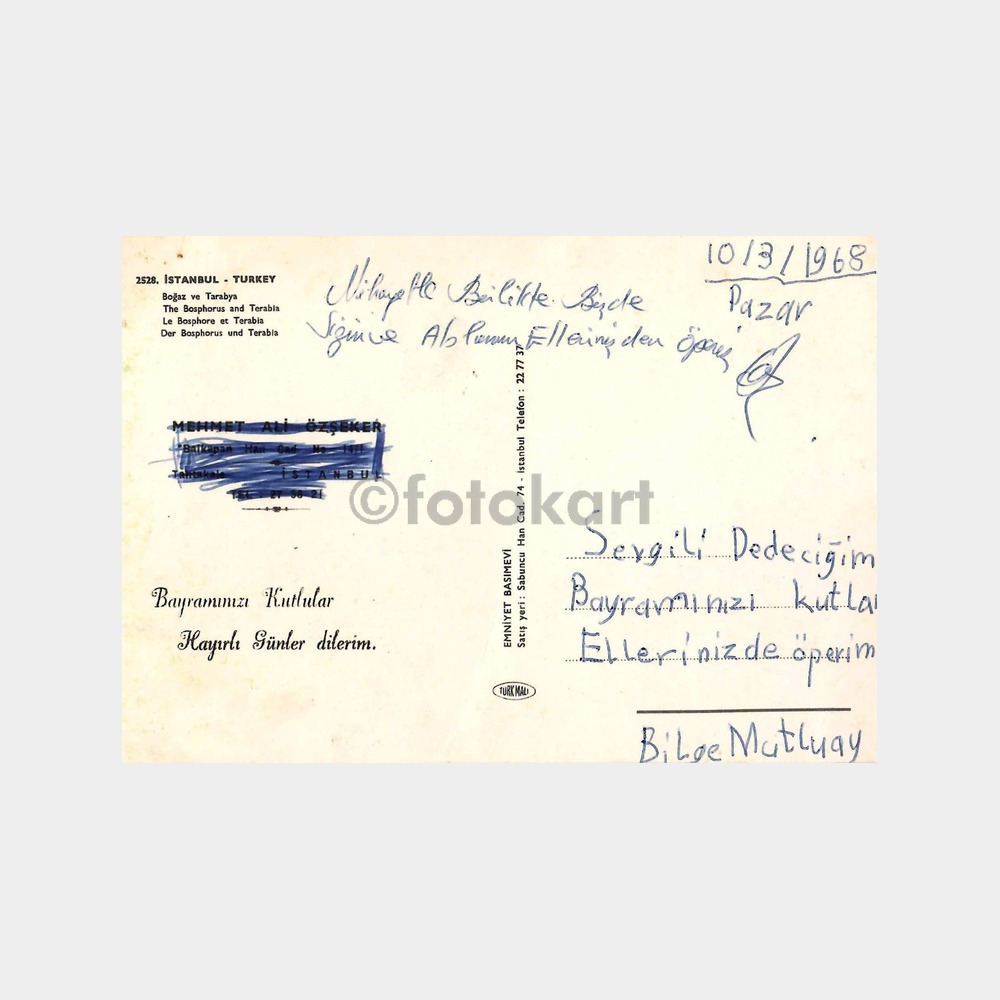 2528. İSTANBUL - TURKEY
Boğaz ve Tarabya
The Bosphorus and Terabia
Le Bosphore et Terabia
Der Bosphorus und Terabia
10/3/1968
Pazar
Birlikte Bizde
Sizin ve Ablamın Ellerinizden öperiz
MEHMET ALİ ÖZŞEKER
Balkapan Han Cad No
Tahtakale İSTANBUL
TEL : 27 58 21
©fotokart
Bayramınızı Kutlular
Hayırlı Günler dilerim.
EMNİYET BASIMEVİ
Satış yeri : Sabuncu Han Cad. 74 - İstanbul Telefon : 22 77 37
TÜRK MALI
Sevgili Dedeciğim
Bayramınızı kutla
Ellerinizde öperim
Bilge Mutluay